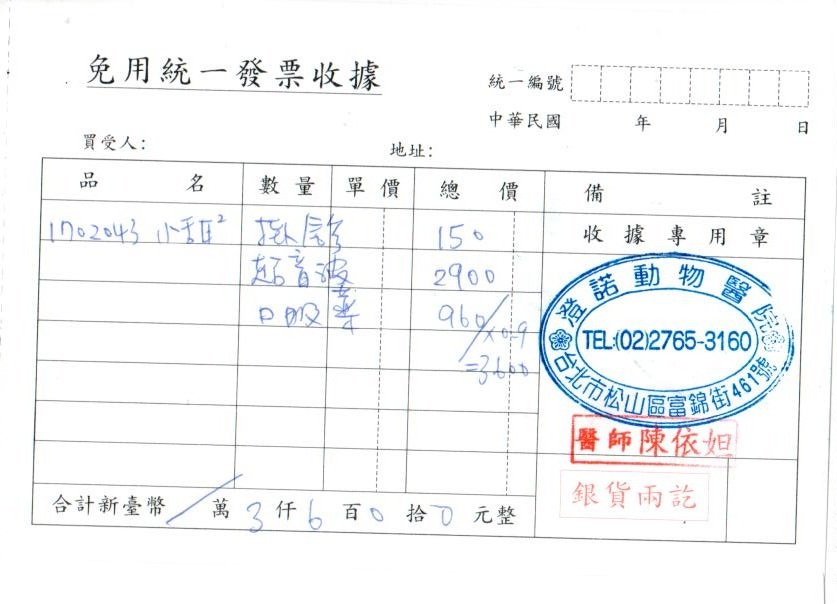 免用統一發票收據
統一編號
中華民國 年 月 日
買受人: 地址:
品 名 數量 單價 總 價 備 註
1702043 小甜² 掛診 150
收據專用章
超音波 2900
口服藥 960/x0.9
=3600
澄諾動物醫院
TEL:(02)2765-3160
台北市松山區富錦街461號
醫師陳依妲
銀貨兩訖
合計新臺幣 / 萬 3 仟 6 百 0 拾 0 元整